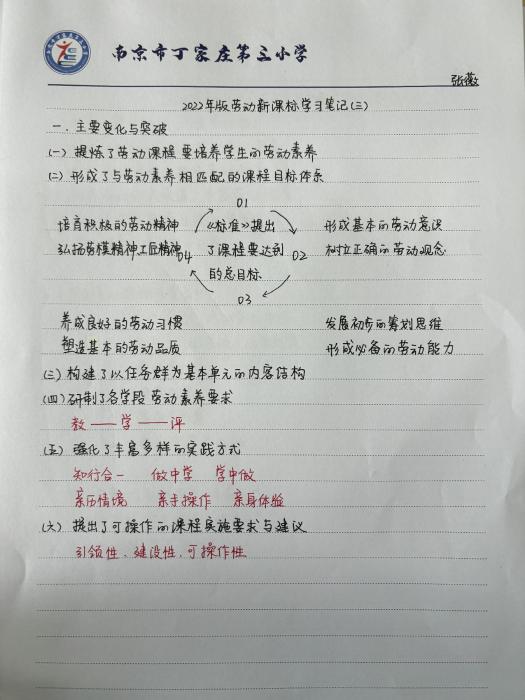 南京市丁家庄第三小学
张薇
2022年版劳动新课标学习笔记(三)
一.主要变化与突破
(一) 提炼了劳动课程要培养学生的劳动素养
(二) 形成了与劳动素养相匹配的课程目标体系
01
培育积极的劳动精神 《标准》提出 形成基本的劳动意识
弘扬劳模精神工匠精神 04 了课程要达到 02 树立正确的劳动观念
的总目标
03
养成良好的劳动习惯 发展初步的筹划思维
塑造基本的劳动品质 形成必备的劳动能力
(三) 构建了以任务群为基本单元的内容结构
(四) 研制了各学段劳动素养要求
教——学——评
(五) 强化了丰富多样的实践方式
知行合一 做中学 学中做
亲历情境 亲手操作 亲身体验
(六) 提出了可操作的课程实施要求与建议
引领性、建设性、可操作性